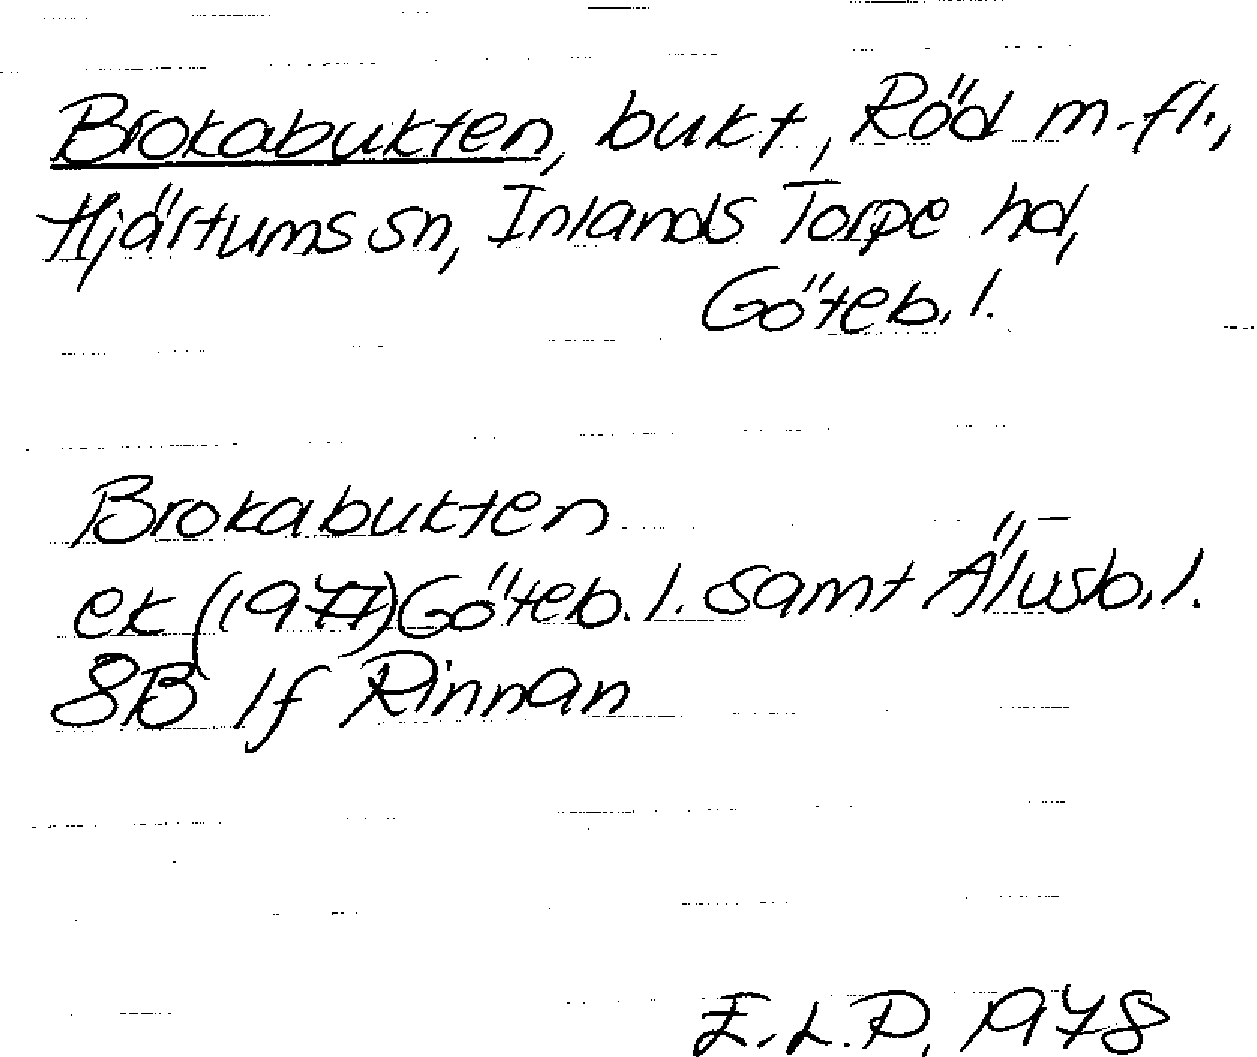 Brokabukten, bukt, Röd m.fl.,
Hjärtums sn, Inlands Torpe hd,
Göteb. l.
Brokabukten
ek (1977) Göteb. l. samt Älvsb. l.
8B 1f Rinnan
E.L.P. 1978